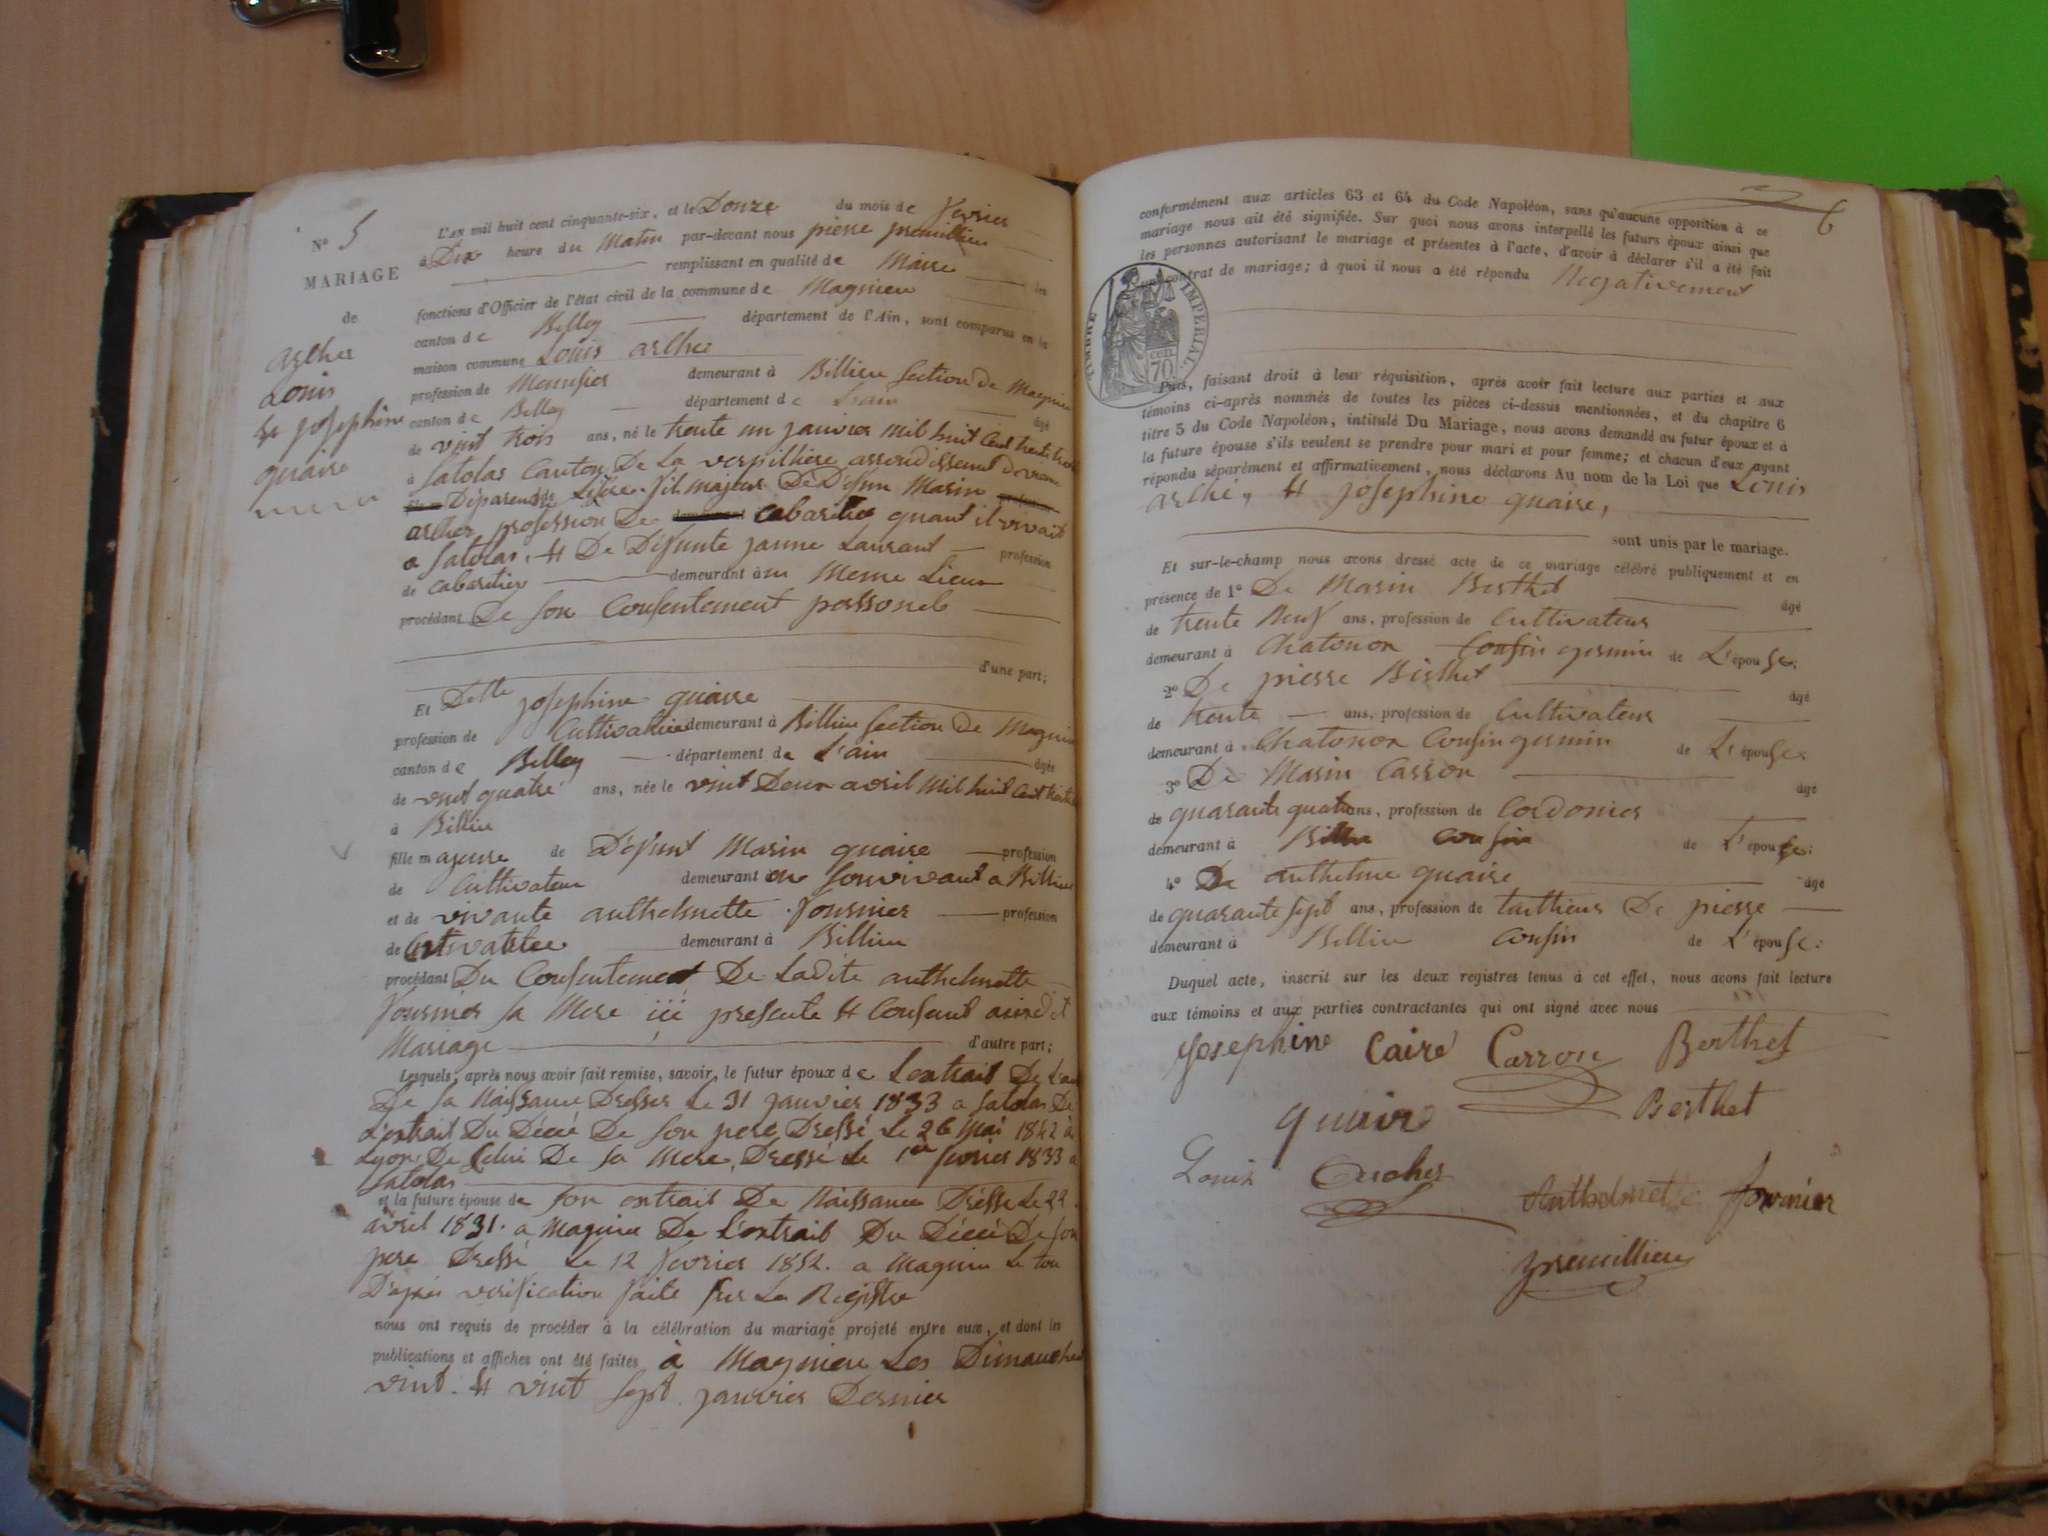 N° 5
MARIAGE
de
archer
Louis
et josephine
quaire
L'AN mil huit cent cinquante-six, et le Douze du mois de fevrier
à Dix heure du Matin par-devant nous pierre premillieu
remplissant en qualité de Maire les
fonctions d'Officier de l'état civil de la commune de Magnieu
canton de Belley département de l'Ain, sont comparus en la
maison commune Louis archer
profession de Menusier demeurant à Billieu section de Magnieu
canton de Belley département de L'ain âgé
de vint trois ans, né le trente un janvier mil huit Cent trente trois
à Satolas Canton De La verpillière arrondissement de vienne
Département Lisère fils majeur De Défun Marin
archer profession De cabaretier quant il vivait
a Satolas, et De Défunte janne Laurant profession
de cabaretier demeurant au Meme Lieux
procédant De son Consentement personele
d'une part;
Et Delle josephine quaire
profession de Cultivatrice demeurant à Billieu section De Magnieu
canton de Belley département de L'ain âgée
de vint quatre ans, née le vint Deux avril Mil huit Cent trente
à Billieu
fille majeure de Défunt Marin quaire profession
de Cultivateur demeurant en son vivant a Billieu
et de vivante anthelmette fournier profession
de Cultivatrice demeurant à Billieu
procédant Du Consentement De Ladite anthelmette
fournier sa Mere ici presente et Consent audit
Mariage d'autre part;
Lesquels, après nous avoir fait remise, savoir, le futur époux de Lextrait De L'acte
De sa Naissance Dresser Le 31 janvier 1833 a Satolas De
L'extrait Du Décé De son pere Dressé Le 26 Mai 1842 à
Lyon, De Celui De sa Mere, Dressé Le 1er fevrier 1833 a
Satolas
et la future épouse de son extrait De Naissance Dressé Le 22
avril 1831. a Magnieu De L'extrait Du Décé De son
pere Dressé Le 12 fevrier 1852. a Magnieu Le tou
D'après verification faite sur Le Registre
nous ont requis de procéder à la célébration du mariage projeté entre eux, et dont les
publications et affiches ont été faites à Magnieu Les Dimanches
vint et vint sept janvier Dernier
6
conformément aux articles 63 et 64 du Code Napoléon, sans qu'aucune opposition à ce
mariage nous ait été signifiée. Sur quoi nous avons interpellé les futurs époux ainsi que
les personnes autorisant le mariage et présentes à l'acte, d'avoir à déclarer s'il a été fait
contrat de mariage; à quoi il nous a été répondu Negativement
TIMBRE IMPÉRIAL
70 cen.
Puis, faisant droit à leur réquisition, après avoir fait lecture aux parties et aux
témoins ci-après nommés de toutes les pièces ci-dessus mentionnées, et du chapitre 6
titre 5 du Code Napoléon, intitulé Du Mariage, nous avons demandé au futur époux et à
la future épouse s'ils veulent se prendre pour mari et pour femme; et chacun d'eux ayant
répondu séparément et affirmativement, nous déclarons Au nom de la Loi que Louis
arché, et josephine quaire,
sont unis par le mariage.
Et sur-le-champ nous avons dressé acte de ce mariage célébré publiquement et en
présence de 1° De Marin Berthet âgé
de trente Neuf ans, profession de Cultivateur
demeurant à Chatonon Cousin germin de L'épouse;
2° De pierre Berthet âgé
de trente ans, profession de Cultivateur
demeurant à Chatonon Cousin germin de L'épouse
3° De Marin Carron âgé
de quarante quatre ans, profession de Cordonier
demeurant à Billieu cousin de L'épouse;
4° De anthelme quaire âgé
de quarante sept ans, profession de tailleur De pierre
demeurant à Billieu Cousin de L'épouse:
Duquel acte, inscrit sur les deux registres tenus à cet effet, nous avons fait lecture
aux témoins et aux parties contractantes qui ont signé avec nous
Josephine Caire Carron Berthet
quaire Berthet
Louis Archer
Anthelmette fournier
premillieu